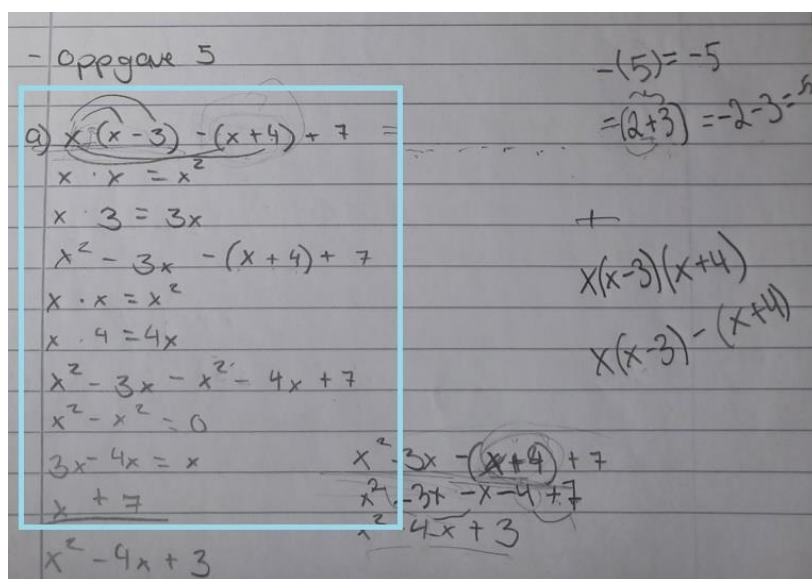 - Oppgave 5
a) x (x - 3) - (x + 4) + 7 =
x · x = x²
x · 3 = 3x
x² - 3x - (x + 4) + 7
x · x = x²
x · 4 = 4x
x² - 3x - x² - 4x + 7
x² - x² = 0
3x - 4x = x
x + 7
x² - 4x + 3
-(5) = -5
=(2+3) = -2-3=-5
+
x(x-3)(x+4)
x(x-3) - (x+4)
x² - 3x - (x+4) + 7
x² - 3x - x - 4 + 7
x² - 4x + 3